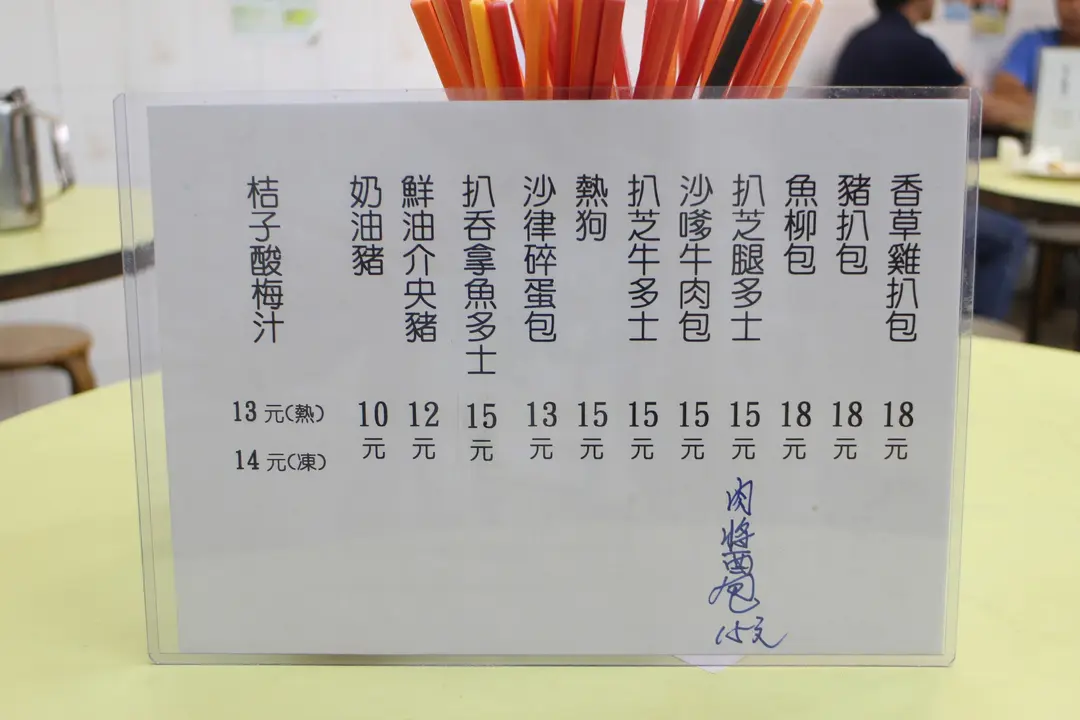 香草雞扒包 18元
豬扒包 18元
魚柳包 18元
扒芝腿多士 15元
沙嗲牛肉包 15元
扒芝牛多士 15元
熱狗 15元
沙律碎蛋包 13元
扒吞拿魚多士 15元
鮮油介央豬 12元
奶油豬 10元
桔子酸梅汁 13元(熱)
14元(凍)
肉醬包 15元